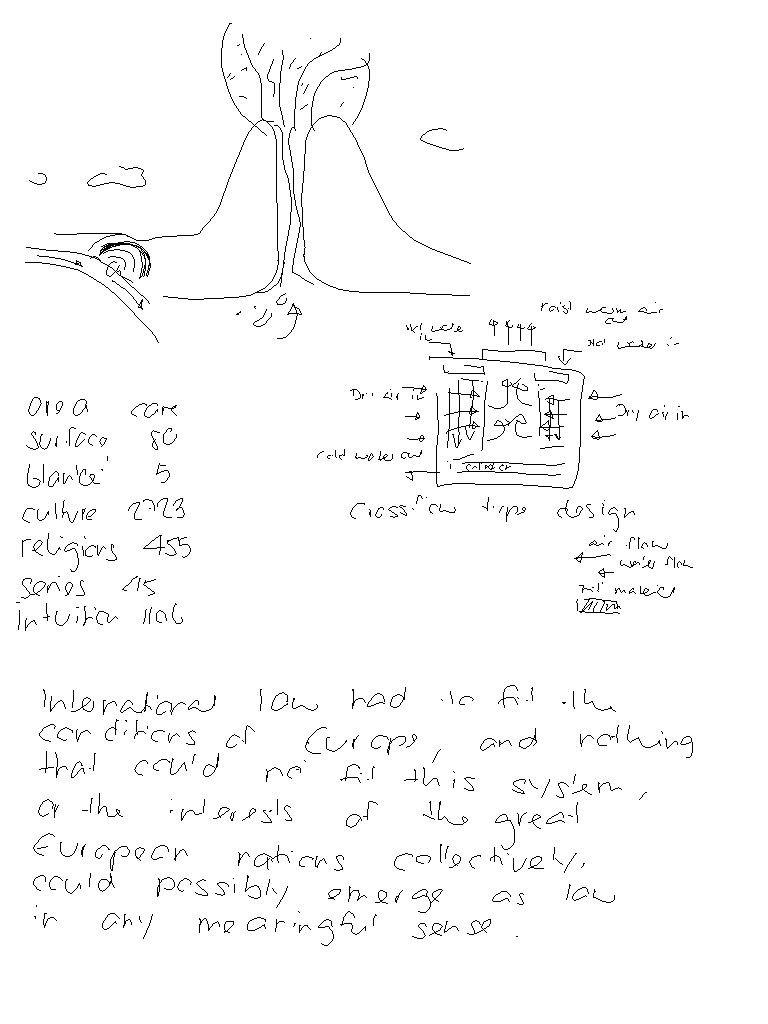 moist warm air
out
Hot water
in
Hot water in
Dry air in
Dry air in
cold water out
collector
Crossflow type design
air flow
water flow
fill material
area care
surface 80
blanket 5
culture 2723
religions 455
series 415
Intuition 1106
International law had to fit the
conditions of Europe, and nothing
that could not fit this system,
or the interests of the great
European nations collectively,
could possibly emerge as law
in any meaningful sense.